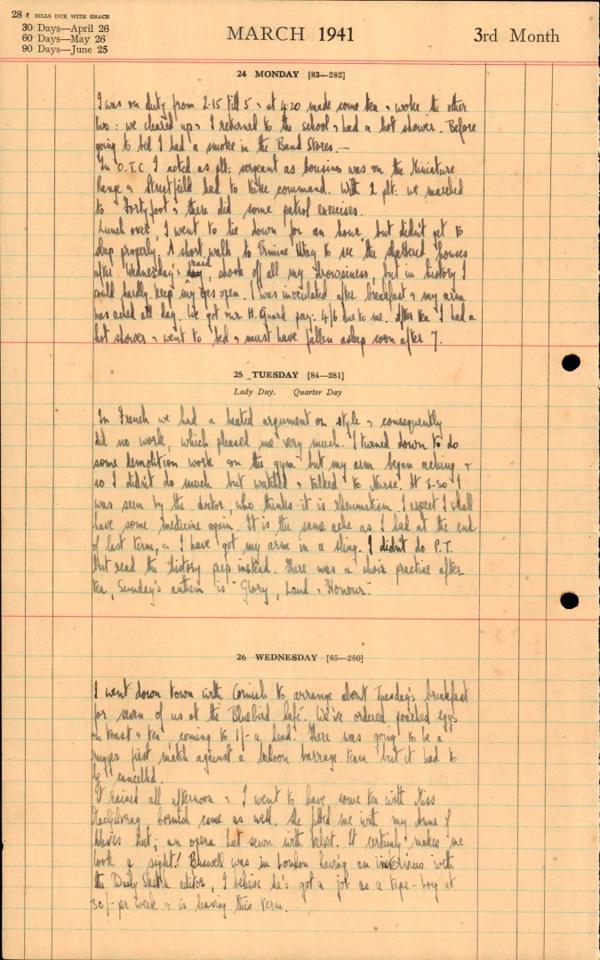 28 BILLS DUE WITH GRACE
30 Days—April 26
60 Days—May 26
90 Days—June 25
MARCH 1941
3rd Month
24 MONDAY [83—282]
I was on duty from 2·15 till 5 & at 4·20 made some tea & woke the other
two : we cleared up & I returned to the school & had a hot shower. Before
going to bed I had a smoke in the Band Stores.—
In O.T.C I acted as plt: sergeant as Cousins was on the Miniature
Range & Streetfield had to take command. With 2 plt: we marched
to Fortyfoot & there did some patrol exercises.
Lunch over, I went to lie down for an hour but didn't get to
sleep properly. A short walk to Ermine Way to see the shattered houses
after Wednesday's raid shook off all my drowsiness, but in history I
could hardly keep my eyes open. I was inoculated after breakfast & my arm
has ached all day. We got our H. Guard pay: 4/6 due to me. After tea I had a
hot shower & went to bed & must have fallen asleep soon after 7.
25 TUESDAY [84—281]
Lady Day. Quarter Day
In French we had a heated argument on style & consequently
did no work, which pleased me very much. I turned down to do
some demolition work on the gym but my arm began aching &
so I didn't do much but watched & talked to Nurse! At 5·30 I
was seen by the doctor, who thinks it is rheumatism. I expect I shall
have some medicine again. It is the same ache as I had at the end
of last term, & I have got my arm in a sling. I didn't do P.T.
but read the history prep instead. There was a choir practice after
tea, Sunday's anthem is "Glory, Laud & Honour."
26 WEDNESDAY [85—280]
I went down town with Cornish to arrange about Tuesday's breakfast
for seven of us at the Bluebird Café. We've ordered poached eggs
on toast & tea coming to 1/- a head! There was going to be a
rugger first match against a baloon barrage team but it had to
be cancelled.
It rained all afternoon & I went to have some tea with Miss
Cornish came as well. She fitted me with my Anne of
Cleves hat; an opera hat sewn with velvet. It certainly makes me
look a sight! was in London having an interview with
the Daily Sketch editor, I believe he's got a job as a tape-boy at
30/- per week & is leaving this term.